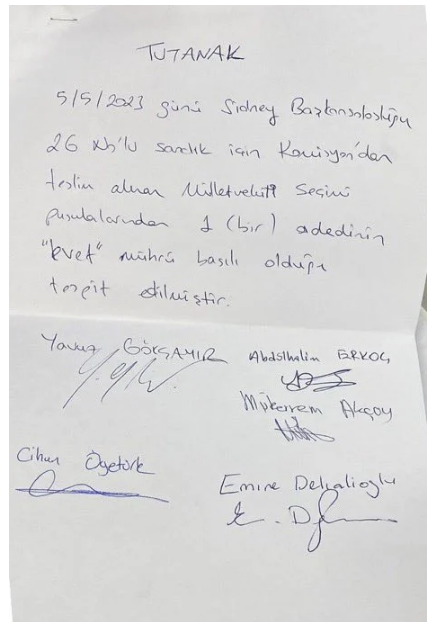 TUTANAK
5/5/2023 günü Sidney Başkonsolosluğu
26 No'lu sandık için Komisyon'dan
teslim alınan Milletvekili Seçimi
pusulalarından 1 (bir) adedinin
"evet" mührü basılı olduğu
tespit edilmiştir.
Yavuz GÖKÇAMIR Abdülhalim ERKOÇ
Mükerrem Akçay
Cihan Ögetürk
Emine Delialioğlu
E. D